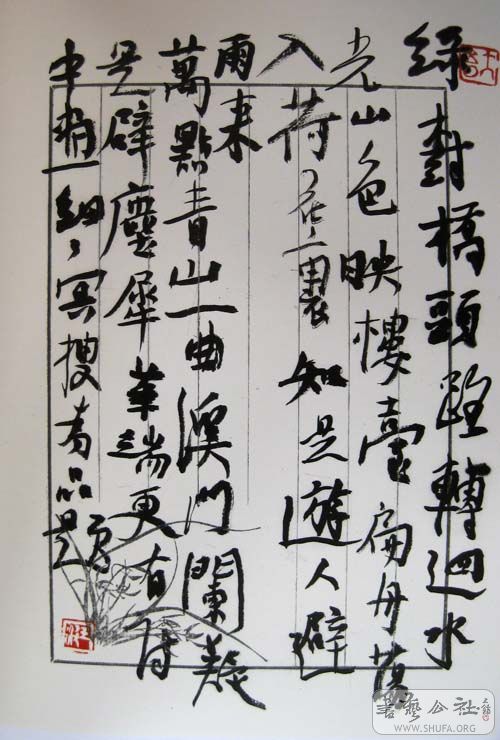 綠樹橋頭路轉迴水
光山色映樓臺扁舟蕩
入荷花裏如是遊人避
雨来
萬點青山一曲溪門闌疑
是辟塵犀筆端更有詩
中趣細々冥搜品題
書藝公社
WWW.SHUFA.ORG